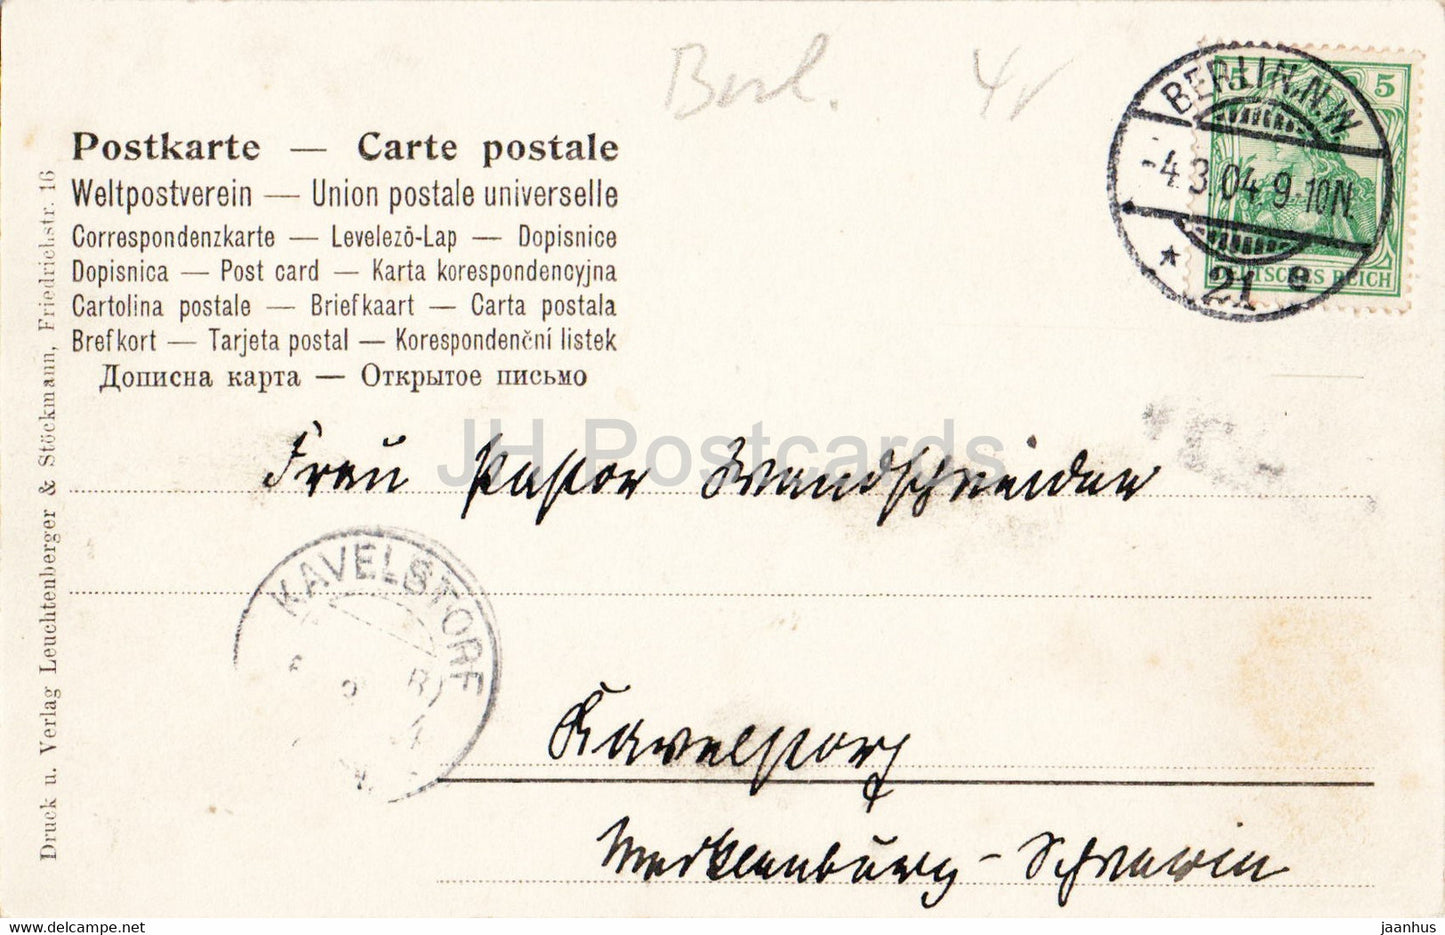 Berl. 4
Postkarte — Carte postale
Weltpostverein — Union postale universelle
Correspondenzkarte — Levelező-Lap — Dopisnice
Dopisnica — Post card — Karta korespondencyjna
Cartolina postale — Briefkaart — Carta postala
Brefkort — Tarjeta postal — Korespondenční listek
Дописна карта — Открытое письмо
5 5
DEUTSCHES REICH
BERLIN.N.W.
-4.3.04.9-10N.
* 21 e
JH Postcards
Frau Pastor Wandschneider
KAVELSTORF
Kavelstorf
Mecklenburg-Schwerin
Druck u. Verlag Leuchtenberger & Stöckmann, Friedrichstr. 16
www.delcampe.net
jaanhus